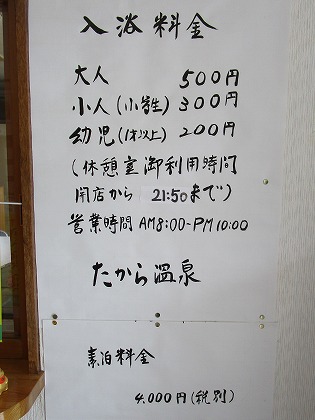 入浴料金
大人 500円
小人(小学生) 300円
幼児(1才以上) 200円
(休憩室御利用時間
開店から 21:50まで)
営業時間 AM8:00-PM10:00
たから温泉
素泊料金
4.000円(税別)